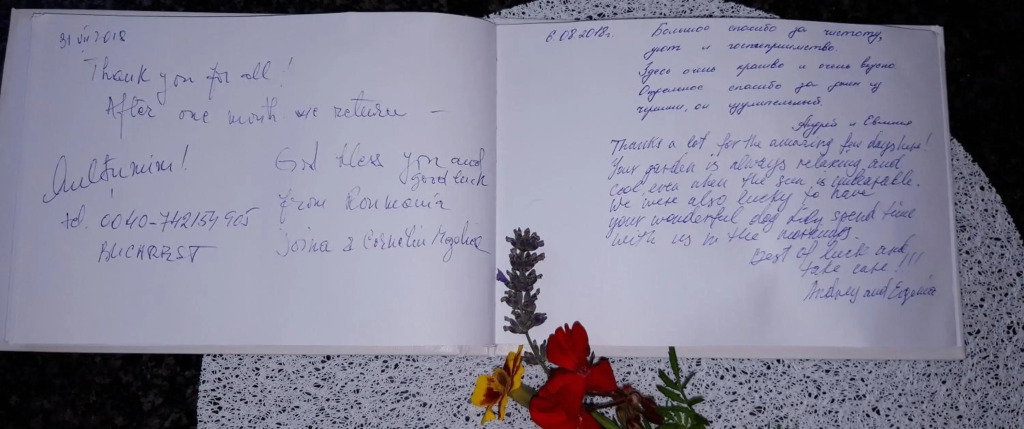 31 VII 2018
Thank you for all!
After one month we return –
Mulțumim!
tel. 0040-742154905
BUCAREST
God bless you and
good luck
from Romania
Doina & Corneliu
6.08.2018г.
Большое спасибо за чистоту,
уют и гостеприимство.
Здесь очень красиво и очень вкусно
Огромное спасибо за джин из
черники, он изумительный.
Андрей и Евгения
Thanks a lot for the amazing few days here!
Your garden is always relaxing and
cool even when the sun is unbearable.
We were also lucky to have
your wonderful dog spend time
with us in the mornings.
Best of luck and
take care!!!
Andrey and Evgenia